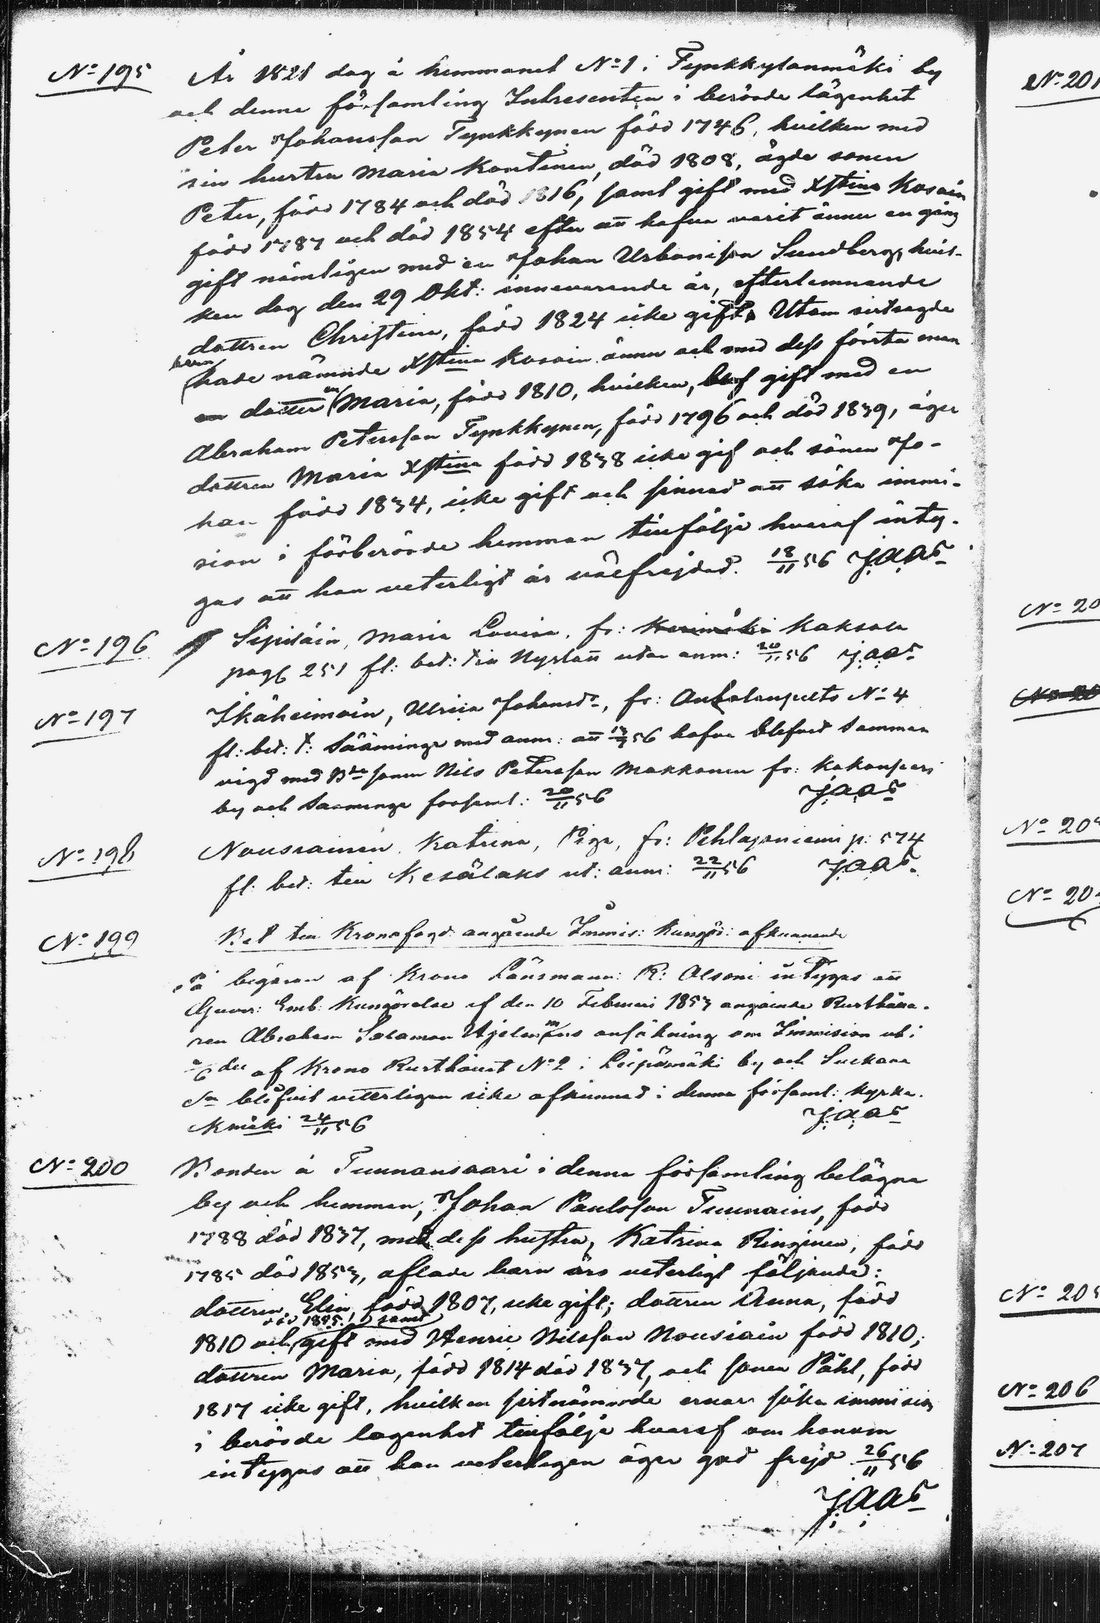 No 195 År 1821 dog å hemmanet No 1 i Tynkkylänmäki by
och denna församling Intresenten i berörde lägenhet
Peter Johansson Tynkkynen född 1746, hvilken med
sin hustru Maria Kontinen, död 1808, ägde sonen
Peter, född 1784 och död 1816, samt gift med Xstina Kosoin
född 1787 och död 1854 efter att hafva varit ännu en gång
gift nämligen med en Johan Urbanisson Sundberg, hvil-
ken dog den 29 Okt: innevarande år, efterlemnande
dottren Christina, född 1824 icke gift. Utom sistsagde
barn hade nämnde Xstina Kosoin ännu och med dess första man
en dotter Maria, född 1810, hvilken, gift med en
Abraham Petersson Tynkkynen, född 1796 och död 1839, äger
dottren Maria Xstina född 1838 icke gift och sonen Jo-
han född 1834, icke gift och sinnad att söka immi-
sion i förberörde hemman tillfölje hvaraf inty-
gas att han veterligt är välfrejdad. 18/11 56
No 196 Maria Lovisa, fr:
pag 251 fl: bet: till Nyslott utan anm: 20/11 56
No 197 Ikäheimoin, Ulrica Johansdr, fr: No 4
fl: bet: t: Sääminge med anm: att 56 hafva blifvit samman
vigd med Bde sonen Nils Petersson Makkonen fr:
by och Sääminge församl: 20/11 56
No 198 Nousiainen Katrina, Piga, fr: Pehlajaniemi p: 574
fl: bet: till Kesälaks ut: anm: 22/11 56
No 199 Bet till Kronofogd: angående Immis: Kungör: afkunnande
På begäran af Krono Länsmann: R: Alsoni intygas att
Guver: Emb: Kungörelse af den 10 Februari 1853 angående Rusthålla-
ren Abraham Salomon ansökning om Immision uti
af Krono Rusthållet No 2 i by och
Sn blifvit vetterligen icke afkunnad i denna församl: kyrka.
24/11 56
No 200 Bonden å Tunnansaari i denna församling belägna
by och hemman, Johan Paulsson Tunnains, född
1788 död 1837, med dess hustru, Katrina Ringinen, född
1785 död 1853, aflade barn äro veterligt följande:
dottren Elin, född 1807, icke gift; dottren Anna, född
1810 och gift med Henric Nilsson Nousiain född 1810;
dottren Maria, född 1814 död 1837, och sonen Påhl, född
1817 icke gift, hvilken sistnämnde ernar söka immision
i berörde lägenhet tillfölje hvaraf om honom
intygas att han veterligen äger god frejd 26/11 56
No 201
No 205
No 206
No 207